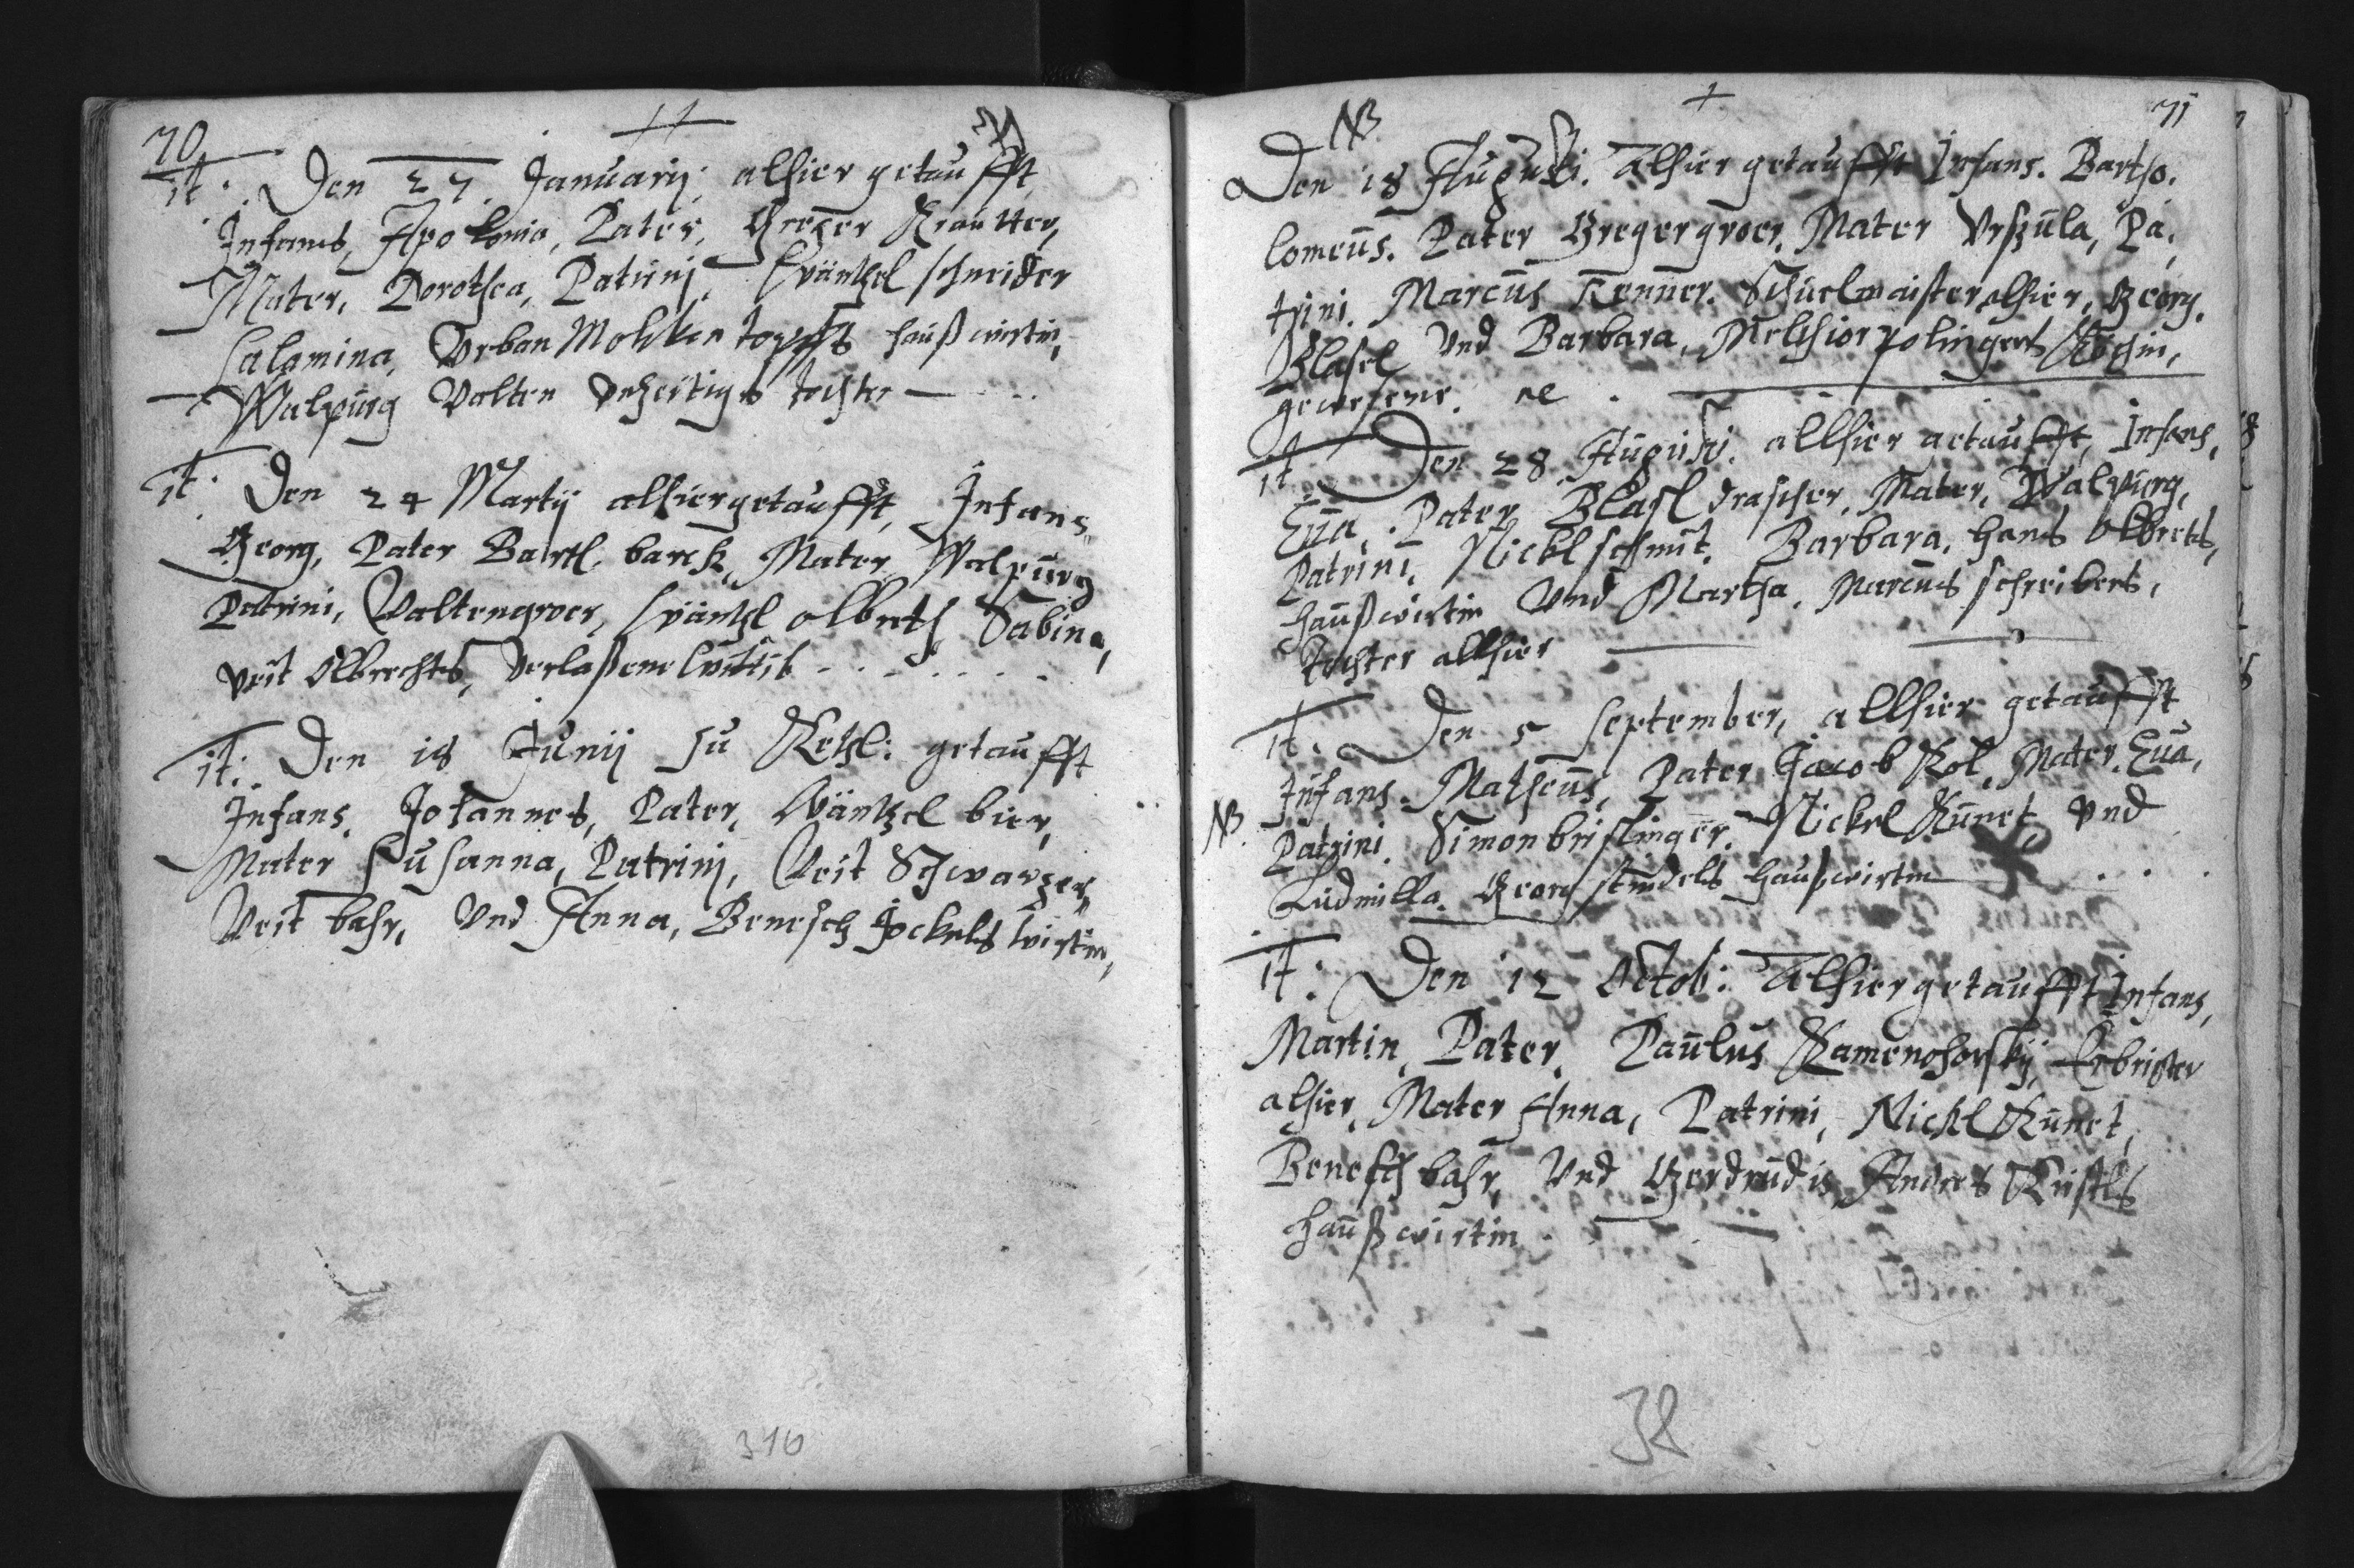 70
it: Den 27 Januarij, alhier getaufft,
Infans, Apolonia, Pater, Greger Krautter,
Mater, Dorothea, Patrini, Wäntzel schneider
Salomina, Vrban Molkentopffs haußwirtin,
Walpurg Valten Vnzeitigs tochter
it: Den 24 Martij alhier getaufft, Infans,
Georg, Pater Bartl barch, Mater Walpurg
Patrini, Valten groer, Wäntzl olbrech Sabina,
veit Olbrechts, verlaßene Wittib
it: Den 18 Junij zu Ketzl: getaufft
Infans, Johannes, Pater, Wäntzel bier,
Mater Susanna, Patrinj, Veit Schwarzer,
Veit bahr, Vnd Anna, Benesch Jockels wirtin,
316
NB
71
Den 18 Augusti. Alhier getaufft Infans. Bartho.
lomeus. Pater Greger groer, Mater Vrszula, Pa,
trini. Marcus Renner. Schuelmaister alhier, Georg.
Blasel Vnd Barbara, Melchior polingers Köchin,
gewesene.
it Den 28 Augusti. allhier getaufft, Infans,
Eua, Pater Blasl drascher, Mater, Walpurg,
Patrini, Nickl schmit, Barbara, hans olbrechts,
haußwirtin Vnd Martha, Marcus schreibers,
tochter allhier
it. Den 5 September, allhier getaufft
Infans. Matheus, Pater Jacob Kol, Mater. Eua,
NB. Patrini. Simon brislinger. Nickel Kunet, Vnd
Ludmilla. Georg stindels haußwirtin
it: Den 12 Octob: Alhier getaufft Infans,
Martin, Pater, Paulus Kamenohorskÿ,
alhier, Mater Anna, Patrini, Nickl Kunet,
Benesch bahr, Vnd Gerdrudis Andres Kristls
haußwirtin
38